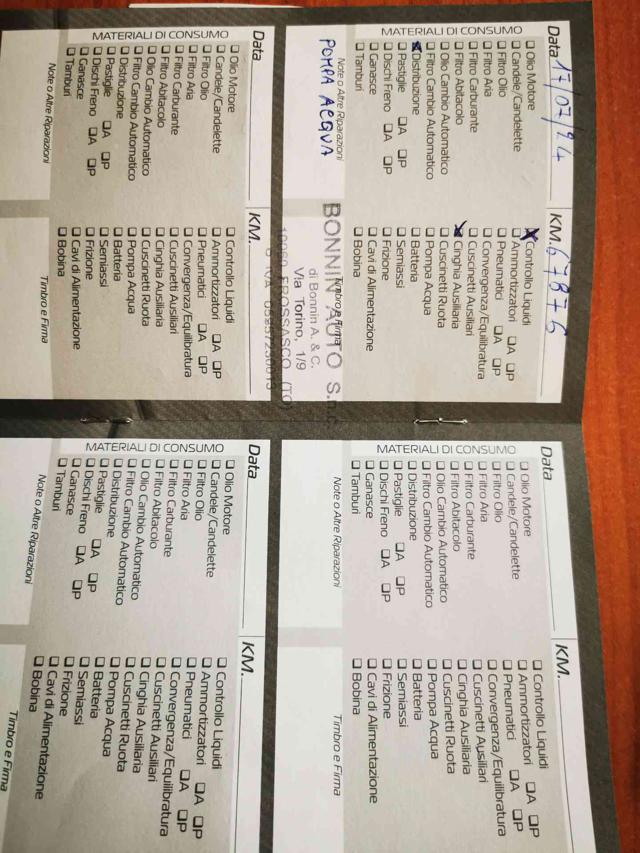 Data 17/07/24 KM. 67876
MATERIALI DI CONSUMO
Olio Motore
Candele/Candelette
Filtro Olio
Filtro Aria
Filtro Carburante
Filtro Abitacolo
Olio Cambio Automatico
Filtro Cambio Automatico
Distribuzione
Pastiglie A P
Dischi Freno A P
Ganasce
Tamburi
Controllo Liquidi
Ammortizzatori A P
Pneumatici A P
Convergenza/Equilibratura
Cuscinetti Ausiliari
Cinghia Ausiliaria
Cuscinetti Ruota
Pompa Acqua
Batteria
Semiassi
Frizione
Cavi di Alimentazione
Bobina
Note o Altre Riparazioni
POMPA ACQUA
Timbro e Firma
BONNIN AUTO S.n.c.
di Bonnin A. & C.
Via Torino, 1/9
10060 FROSSASCO (TO)
Data KM.
MATERIALI DI CONSUMO
Olio Motore
Candele/Candelette
Filtro Olio
Filtro Aria
Filtro Carburante
Filtro Abitacolo
Olio Cambio Automatico
Filtro Cambio Automatico
Distribuzione
Pastiglie A P
Dischi Freno A P
Ganasce
Tamburi
Controllo Liquidi
Ammortizzatori A P
Pneumatici A P
Convergenza/Equilibratura
Cuscinetti Ausiliari
Cinghia Ausiliaria
Cuscinetti Ruota
Pompa Acqua
Batteria
Semiassi
Frizione
Cavi di Alimentazione
Bobina
Note o Altre Riparazioni
Timbro e Firma
Data KM.
MATERIALI DI CONSUMO
Olio Motore
Candele/Candelette
Filtro Olio
Filtro Aria
Filtro Carburante
Filtro Abitacolo
Olio Cambio Automatico
Filtro Cambio Automatico
Distribuzione
Pastiglie A P
Dischi Freno A P
Ganasce
Tamburi
Controllo Liquidi
Ammortizzatori A P
Pneumatici A P
Convergenza/Equilibratura
Cuscinetti Ausiliari
Cinghia Ausiliaria
Cuscinetti Ruota
Pompa Acqua
Batteria
Semiassi
Frizione
Cavi di Alimentazione
Bobina
Note o Altre Riparazioni
Timbro e Firma
Data KM.
MATERIALI DI CONSUMO
Olio Motore
Candele/Candelette
Filtro Olio
Filtro Aria
Filtro Carburante
Filtro Abitacolo
Olio Cambio Automatico
Filtro Cambio Automatico
Distribuzione
Pastiglie A P
Dischi Freno A P
Ganasce
Tamburi
Controllo Liquidi
Ammortizzatori A P
Pneumatici A P
Convergenza/Equilibratura
Cuscinetti Ausiliari
Cinghia Ausiliaria
Cuscinetti Ruota
Pompa Acqua
Batteria
Semiassi
Frizione
Cavi di Alimentazione
Bobina
Note o Altre Riparazioni
Timbro e Firma